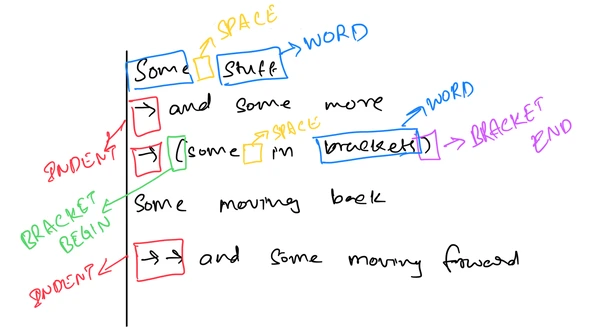 SPACE
WORD
Some stuff
→ and some more
WORD
SPACE
→ (some in brackets)
BRACKET END
INDENT
BRACKET BEGIN
Some moving back
INDENT
→→ and some moving forward